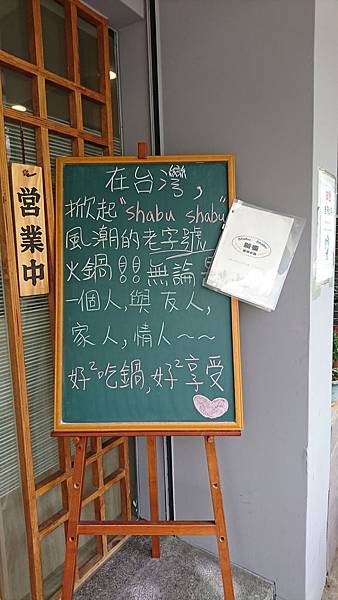 営業中
在台灣,
掀起"shabu shabu"
風潮的老字號
火鍋!!無論是
一個人,與友人,
家人,情人~~
好²吃鍋,好²享受